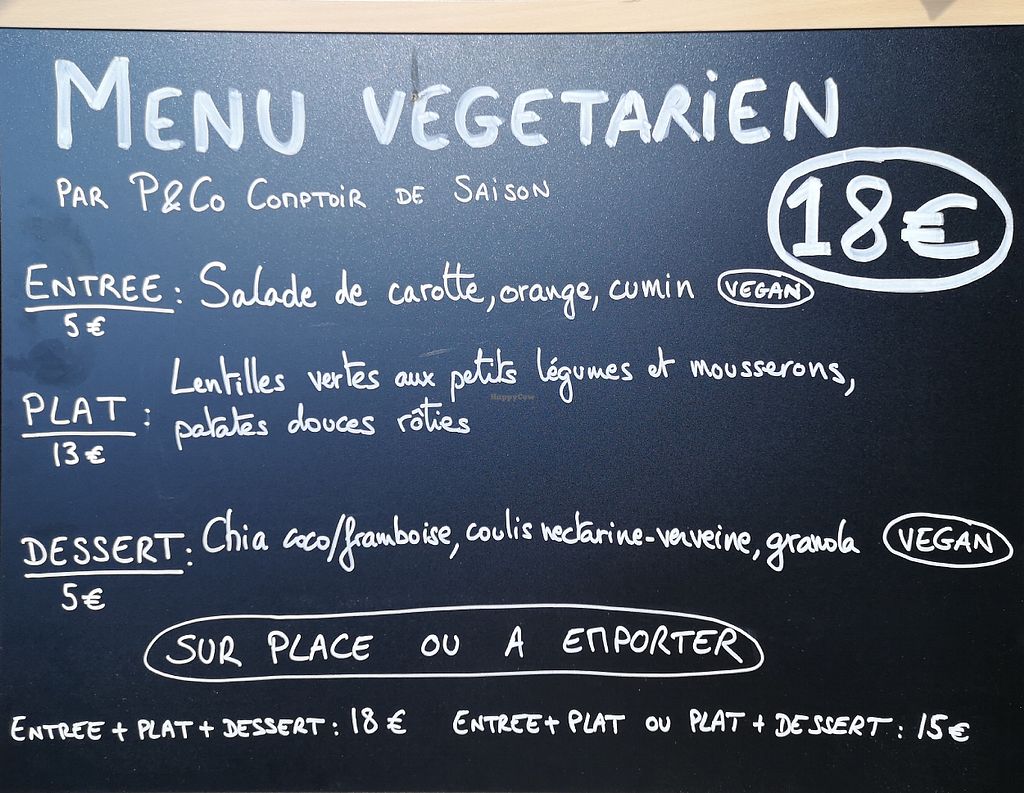 MENU VEGETARIEN
PAR P&CO COMPTOIR DE SAISON
18€
ENTREE : Salade de carotte, orange, cumin VEGAN
5€
Lentilles vertes aux petits légumes et mousserons,
PLAT : patates douces rôties
13€
HappyCow
DESSERT : Chia coco/framboise, coulis nectarine-verveine, granola VEGAN
5€
SUR PLACE OU A EMPORTER
ENTREE + PLAT + DESSERT : 18€ ENTREE + PLAT OU PLAT + DESSERT : 15€